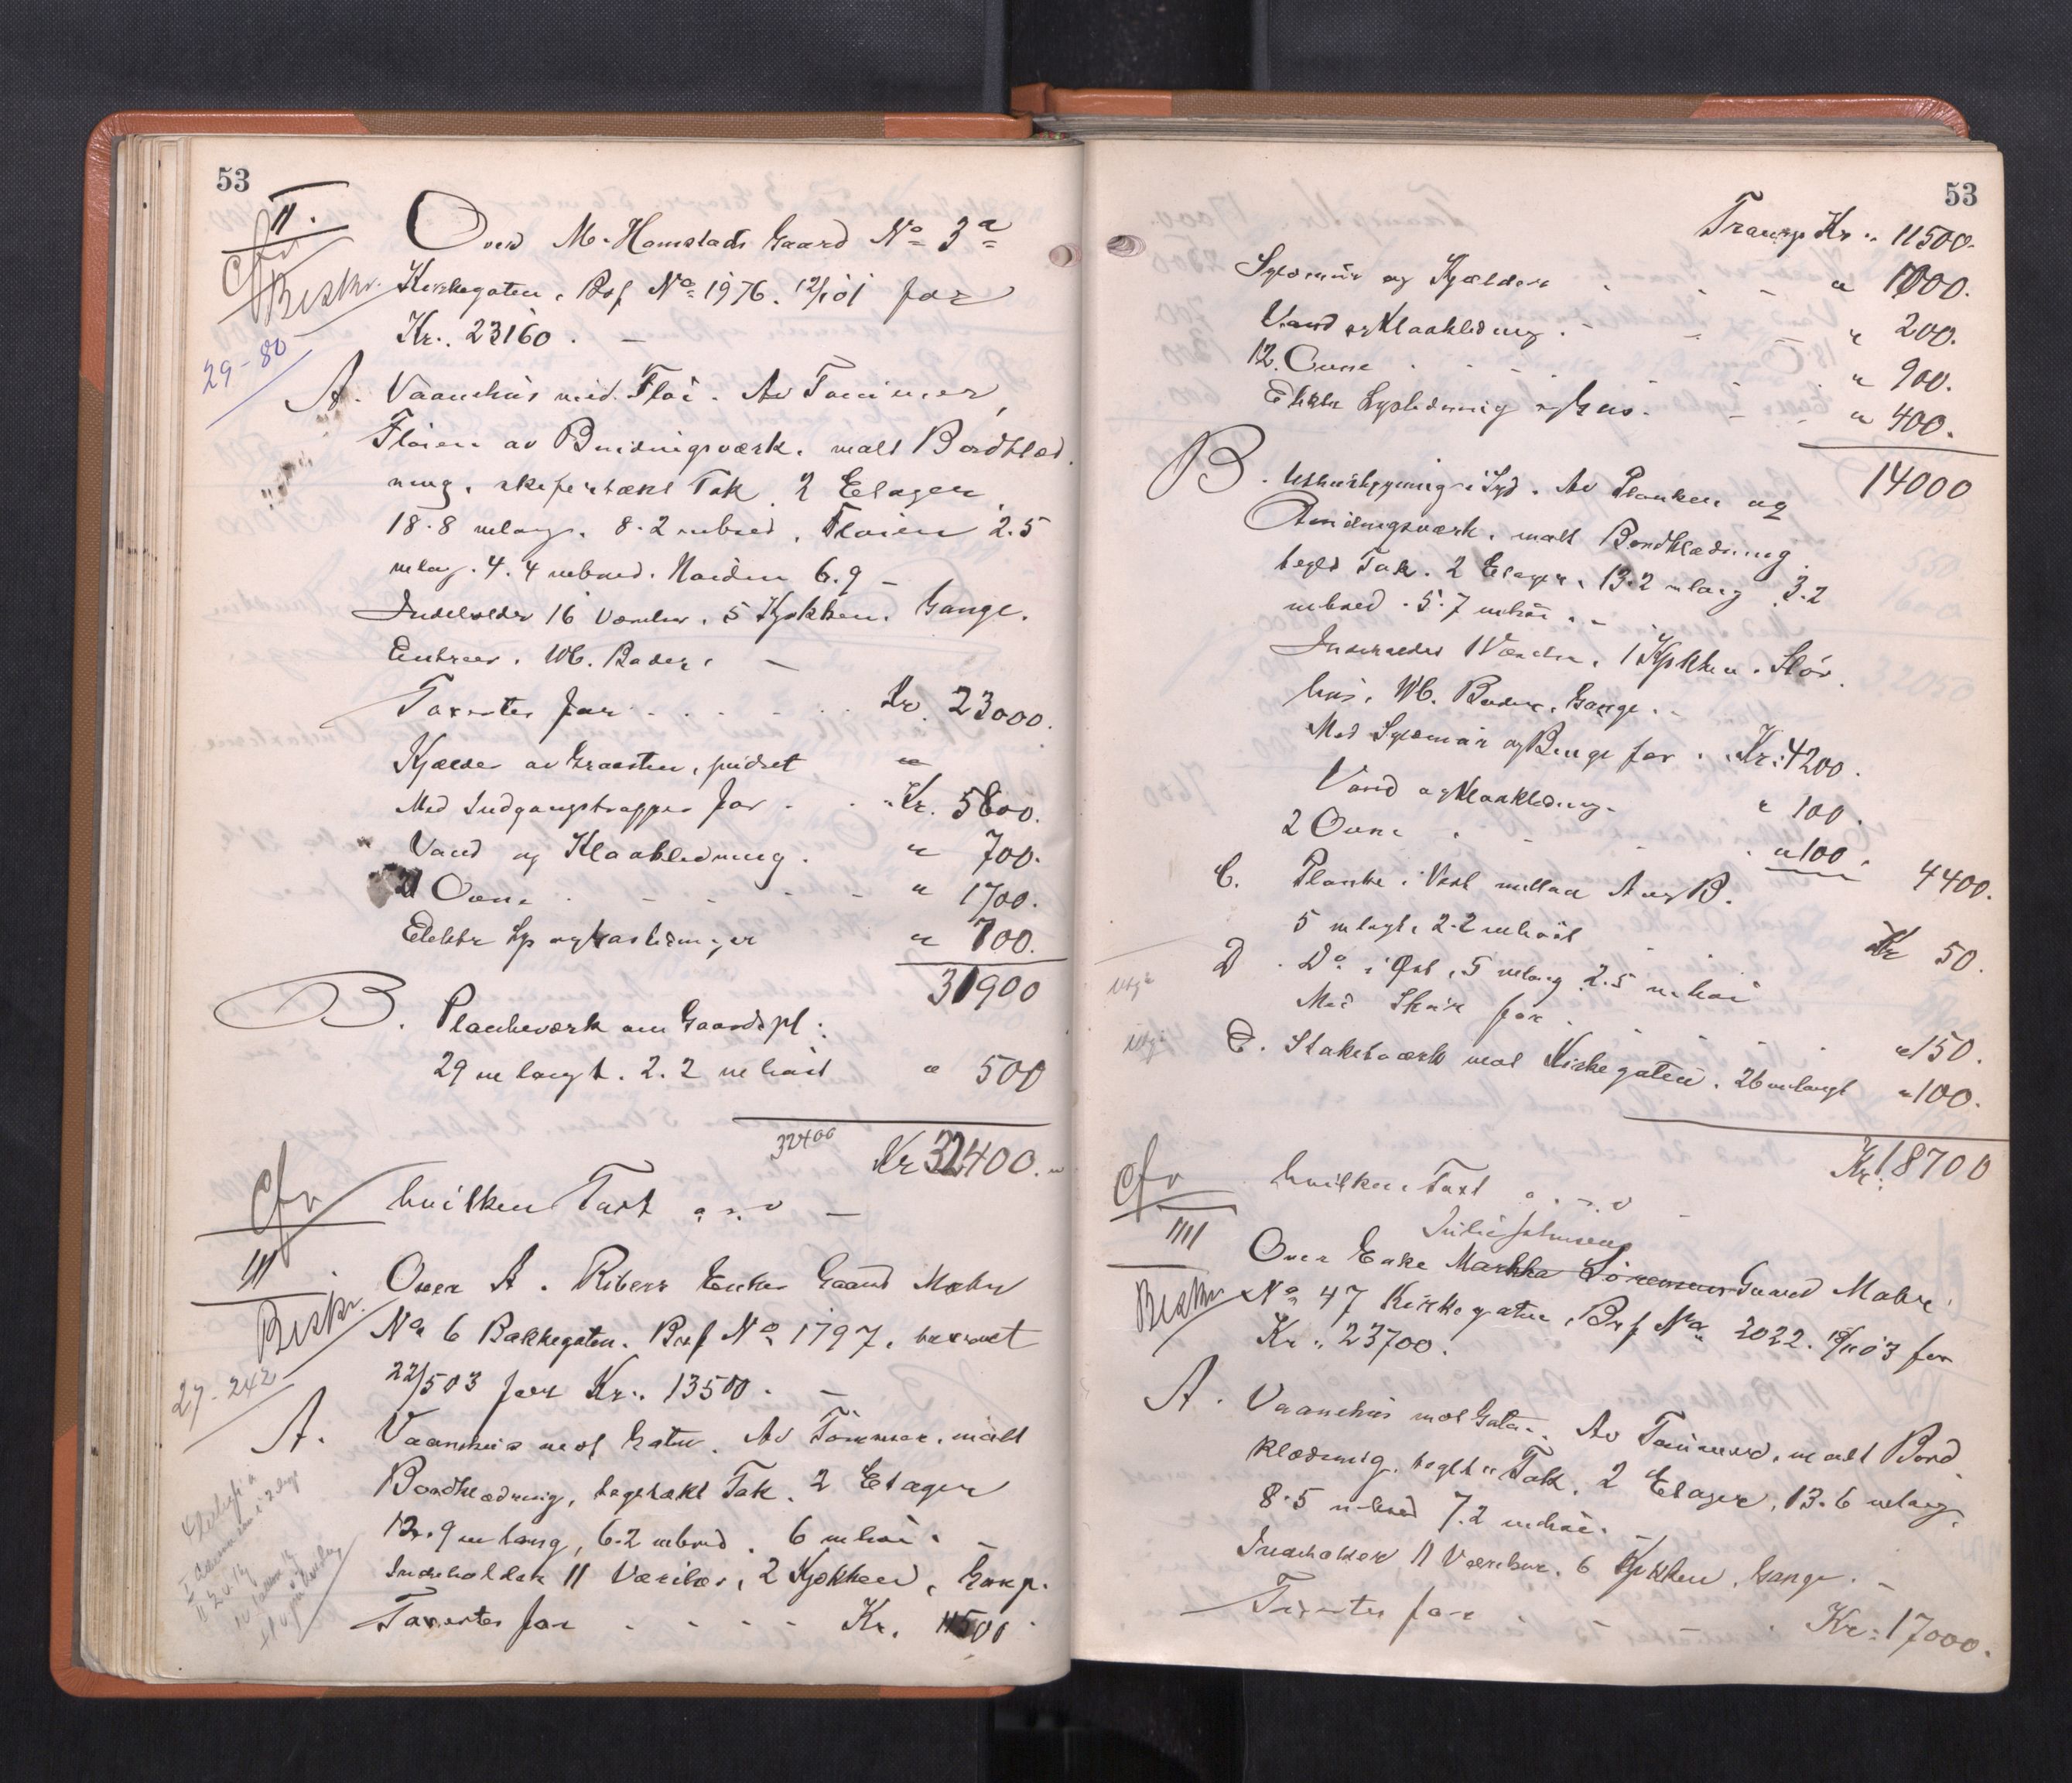 53
II.
Cfr
Beskr.
29-80
Over M. Hamstads Gaard No 3a
Kirkegaten, Brf No 1976. 12/1 01 for
Kr. 23160. —
A. Vaanehus med Fløi. Av Tømmer,
Fløien av Bindingsværk. malt Bordklæd
ning, skifertækt Tak. 2 Etager,
18.8 m lang. 8.2 m bred, Fløien 2.5
m lang. 4.4 m bred. Høiden 6.9 —
Indeholder 16 Værelser. 5 Kjøkken. Gange.
Entreer. WC. Boder. —
Taxertes for Kr. 23000.
Kjælder av Graasten, pudset
Med Indgangstrapper for Kr. 5800.
Vand og Kloakledning. " 700.
21 Ovne " 1700.
Elektr Lys og " 700.
31900
B. Plankeværk om Gaardspl:
29 m langt. 2.2 m høit " 500
32400
Kr 32400.
Cfr
hvilken Taxt o. s. v —
III
Beskr.
27-242
Over A. Ribers Enkes Gaard Matr
No 6 Bakkegaten. Brf No 1797,
22/5 03 for Kr. 13500. —
A. Vaanehus mot Gaten. Av Tømmer, malt
Bordklædning, tegltækt Tak. 2 Etager
12.9 m lang, 6.2 m bred. 6 m høi. —
Indeholder 11 Værelser, 2 Kjøkken, Gange.
Taxertes for Kr. 11500
53
Transp Kr. 11500.
Sylemur og Kjælder " 1000.
Vand og Kloakledning. " 200.
12 Ovne " 900.
Elektr Lysledning " 400.
14000
B. Uthusbygning i Syd. Av Planker og
Bindingsværk, malt Bordklædning
teglt Tak. 2 Etager. 13.2 m lang 3.2
m bred. 5.7 m høi. —
Indeholder 1 Værelse, 1 Kjøkken.
hus, WC. Boder, Gange. —
Med Sylemur og for Kr. 4200.
Vand og Kloakledning " 100.
2 Ovne " 100.
4400.
C. Planke i Vest mellem A og B.
5 m langt, 2.2 m høit Kr 50.
Utgr
D. Do i Øst, 5 m lang 2.5 m høi
Med for " 150.
Utgr
E. Staketværk mot Kirkegaten. 26 m langt " 100.
Kr. 18700
Cfr
hvilken Taxt o. s. v —
IIII
Beskr
Julie Johnsens
Over Enke Martha Sørensens Gaard Matr.
No 47 Kirkegaten, Brf No 2022. 03 for
Kr. 23700.
A. Vaanehus mot Gaten. Av Tømmer, malt Bord
klædning, teglt Tak. 2 Etager, 13.6 m lang.
8.5 m bred 7.2 m høi. —
Indeholder 11 Værelser. 6 Kjøkken, Gange. —
Taxertes for Kr. 17000.